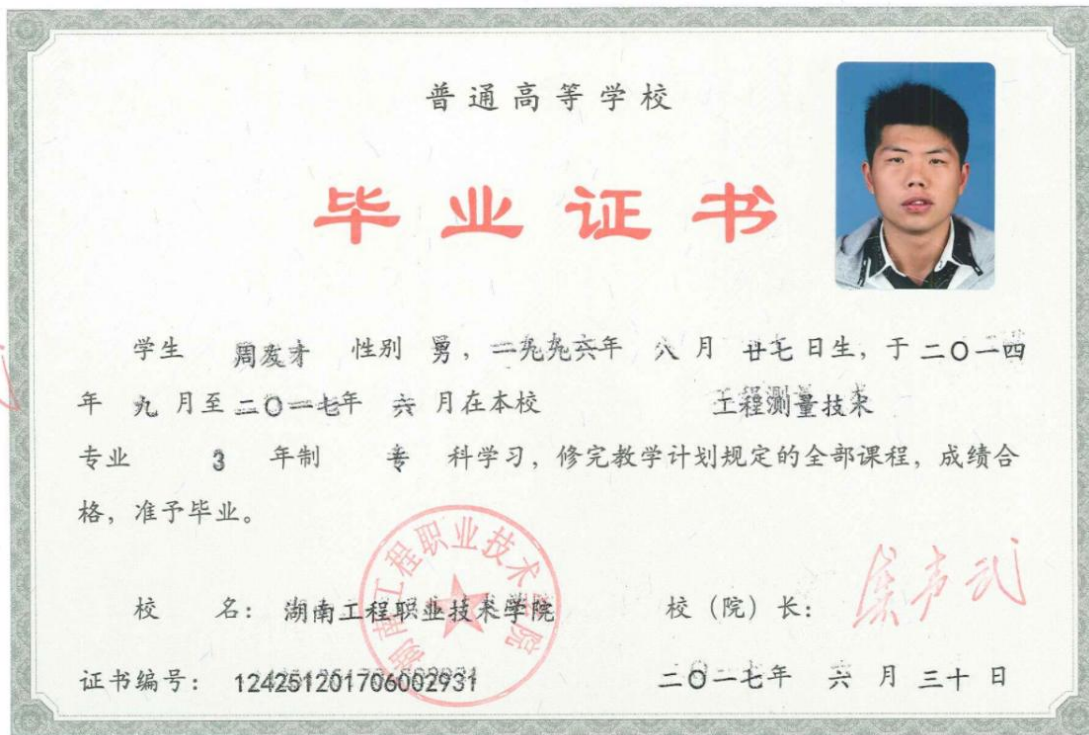 普通高等学校
毕业证书
学生 周友才 性别 男，一九九六年 八 月 廿七 日生，于二〇一四
年 九 月至二〇一七年 六 月在本校 工程测量技术
专业 3 年制 专 科学习，修完教学计划规定的全部课程，成绩合
格，准予毕业。
湖南工程职业技术学院
校 名：湖南工程职业技术学院 校（院）长：
证书编号：124251201706002931 二〇一七年 六 月 三十 日